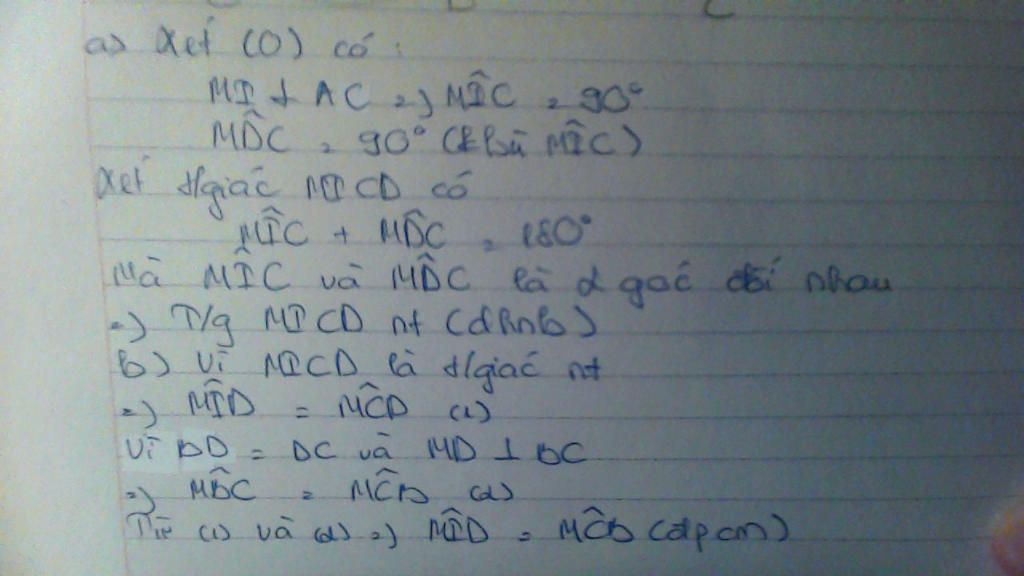 a) Xét (O) có:
MI ⊥ AC => MÎC = 90°
MD̂C = 90° (kề bù MÎC)
Xét t/giác MICD có
MÎC + MD̂C = 180°
Mà MÎC và MD̂C là 2 góc đối nhau
=> T/g MICD nt (đhnb)
b) Vì MICD là t/giác nt
=> MÎD = MĈD (1)
Vì BD = DC và MD ⊥ BC
=> MB̂C = MĈB (2)
Từ (1) và (2) => MÎD = MĈB (đpcm)